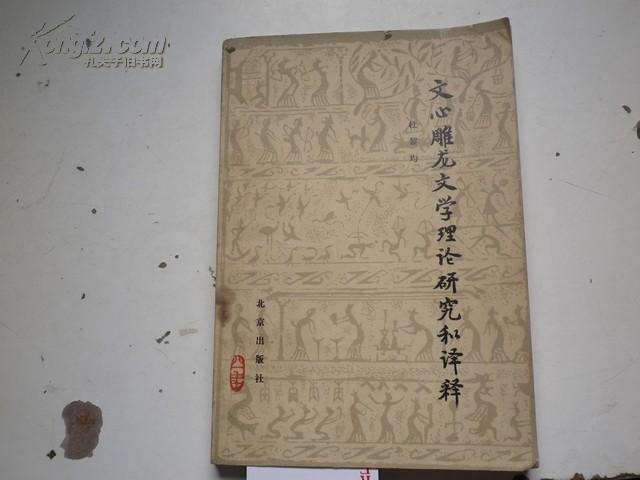 Kongfz.com
孔夫子旧书网
文心雕龙文学理论研究和译释
杜黎均
北京出版社